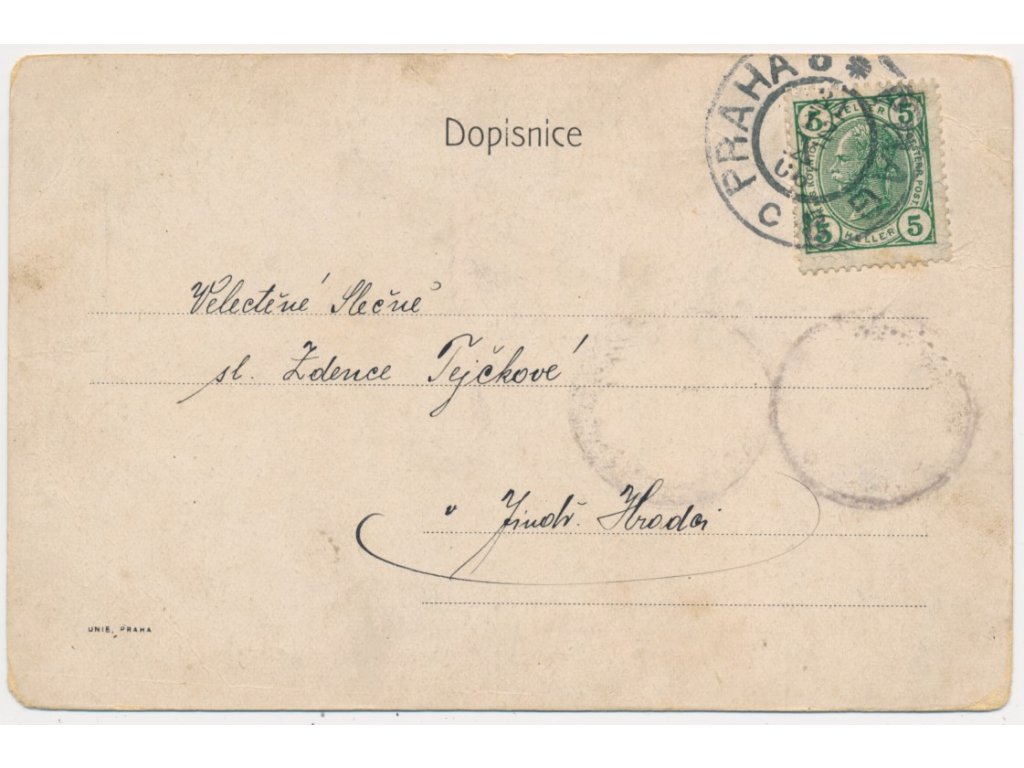 Dopisnice
PRAHA 8
5 HELLER 5
5 HELLER 5
Velectěné Slečně
sl. Zdence Tejčkové
v Jindř. Hradci
UNIE, PRAHA